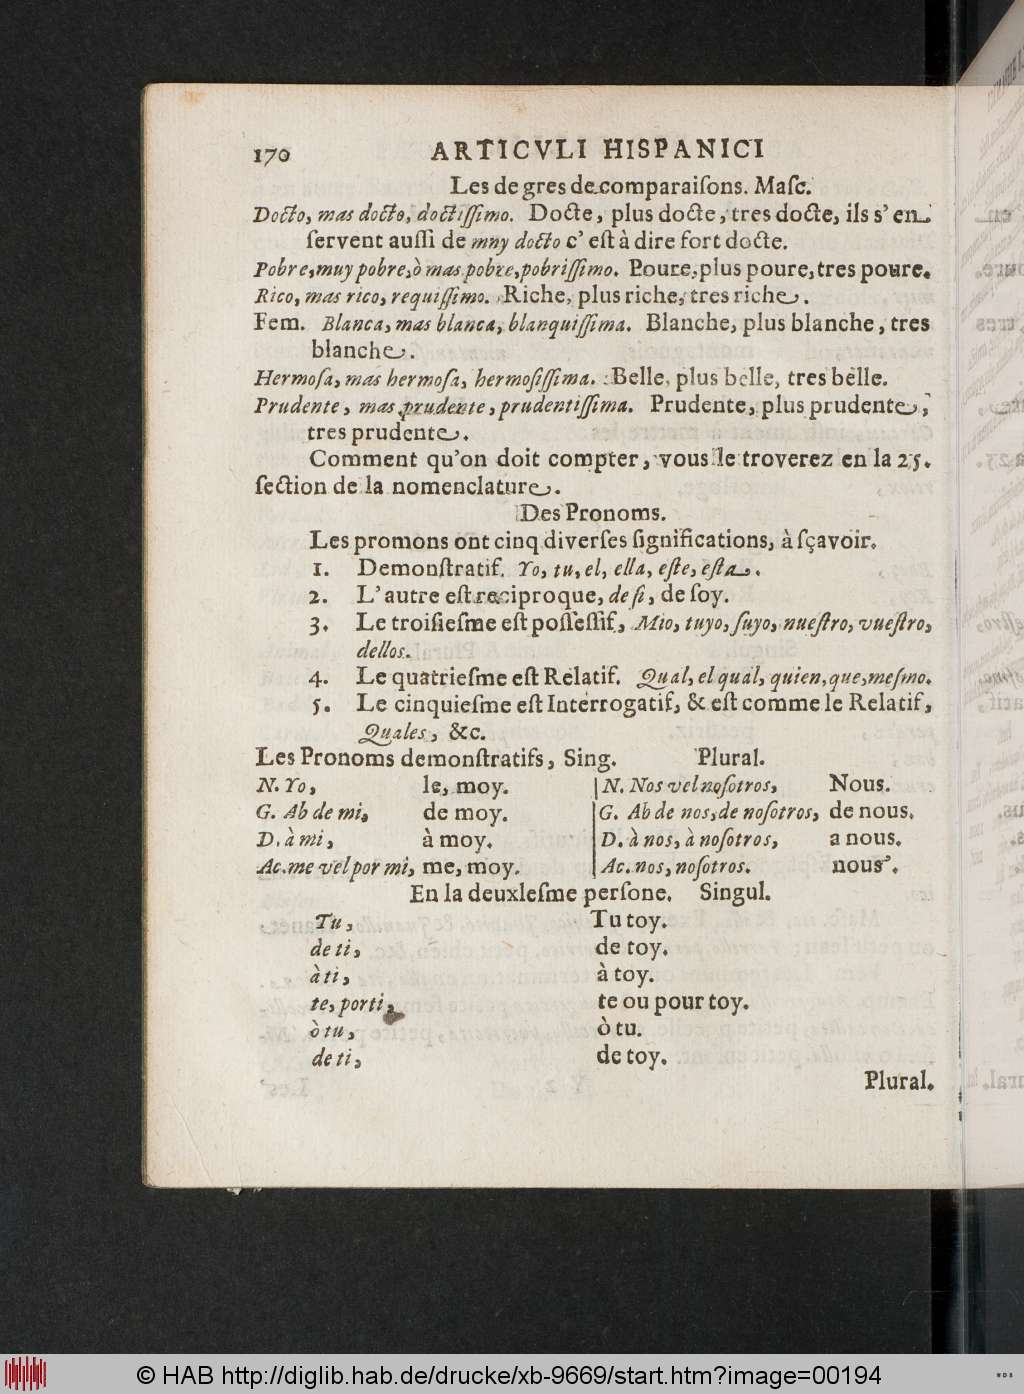 170 ARTICVLI HISPANICI
Les de gres de comparaiſons. Maſc.
Docto, mas docto, doctiſſimo. Docte, plus docte, tres docte, ils s'en
ſervent auſſi de mny docto c' eſt à dire fort docte.
Pobre, muy pobre, ò mas pobre, pobriſſimo. Poure, plus poure, tres poure.
Rico, mas rico, requiſſimo. Riche, plus riche, tres riche.
Fem. Blanca, mas blanca, blanquiſſima. Blanche, plus blanche, tres
blanche.
Hermoſa, mas hermoſa, hermoſiſſima. Belle, plus belle, tres belle.
Prudente, mas prudente, prudentiſſima. Prudente, plus prudente,
tres prudente.
Comment qu'on doit compter, vous le troverez en la 25.
ſection de la nomenclature.
Des Pronoms.
Les promons ont cinq diverſes ſignifications, à ſçavoir.
1. Demonſtratif. Yo, tu, el, ella, eſte, eſta.
2. L'autre eſt reciproque, de ſi, de ſoy.
3. Le troiſieſme eſt poſſeſſif, Mio, tuyo, ſuyo, nueſtro, vueſtro,
dellos.
4. Le quatrieſme eſt Relatif. Qual, el qual, quien, que, meſmo.
5. Le cinquieſme eſt Interrogatif, & eſt comme le Relatif,
Quales, &c.
Les Pronoms demonſtratifs, Sing. Plural.
N. Yo, Ie, moy. N. Nos vel noſotros, Nous.
G. Ab de mi, de moy. G. Ab de nos, de noſotros, de nous.
D. à mi, à moy. D. à nos, à noſotros, a nous.
Ac. me vel por mi, me, moy. Ac. nos, noſotros. nous.
En la deuxIeſme perſone. Singul.
Tu, Tu toy.
de ti, de toy.
à ti, à toy.
te, porti, te ou pour toy.
ò tu, ò tu.
de ti, de toy.
Plural.
© HAB http://diglib.hab.de/drucke/xb-9669/start.htm?image=00194